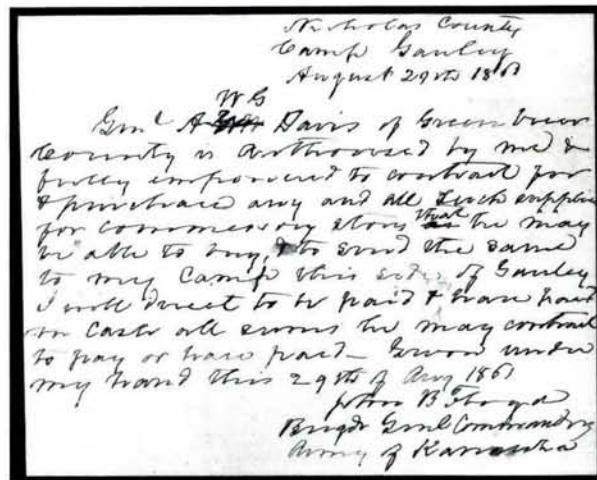 Nicholas County
Camp Gauley
August 29th 1861
W G
Genl A Davis of Green brier
County is Authorised by me &
fully impowered to contract for
& purchase any and all such supplies
for commissary stores that he may
be able to buy, & to send the same
to my Camp this side of Gauley
I will direct to be paid & have paid
in Cash all sums he may contract
to pay or have paid - Given under
my hand this 29th of Aug 1861
John B Floyd
Brigd Genl Commanding
Army of Kanawha